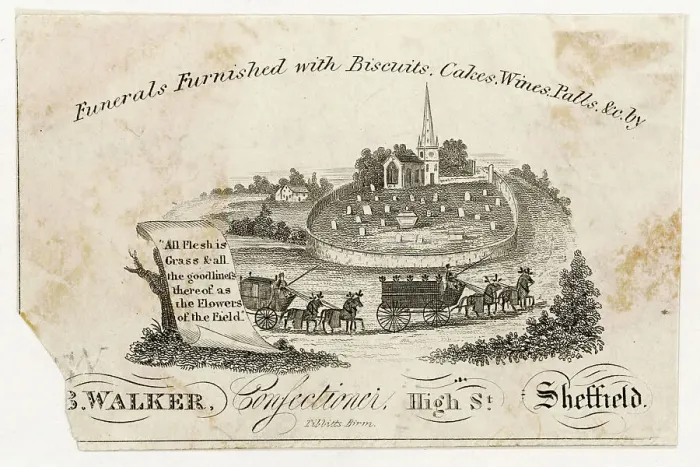 Funerals Furnished with Biscuits, Cakes, Wines, Palls, &c. by
"All Flesh is
Grass & all
the goodlineſs
thereof as
the Flowers
of the Field."
WALKER, Confectioner, High St Sheffield.
Tibbitts Birm.